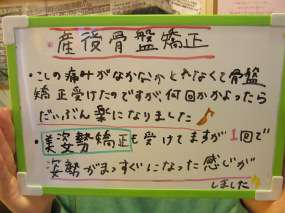 産後骨盤矯正
・こしの痛みがなかなかとれなくて骨盤
矯正受けたのですが、何回かかよったら
だいぶん楽になりました♪
・美姿勢矯正も受けてますが1回で
姿勢がまっすぐになった感じが
しました